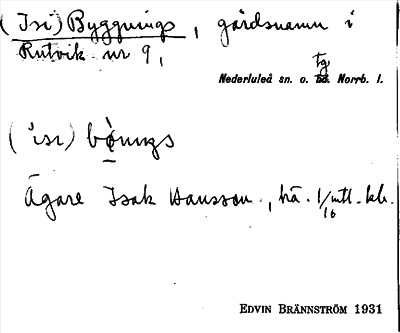 (Isi) Byggnings, gårdsnamn i
Rutvik nr 9,
tg
Nederluleå sn. o. hd. Norrb. l.
(isi) bònıngs
Ägare Isak Hansson, hä. 1/16 mtl. kr.
EDVIN BRÄNNSTRÖM 1931